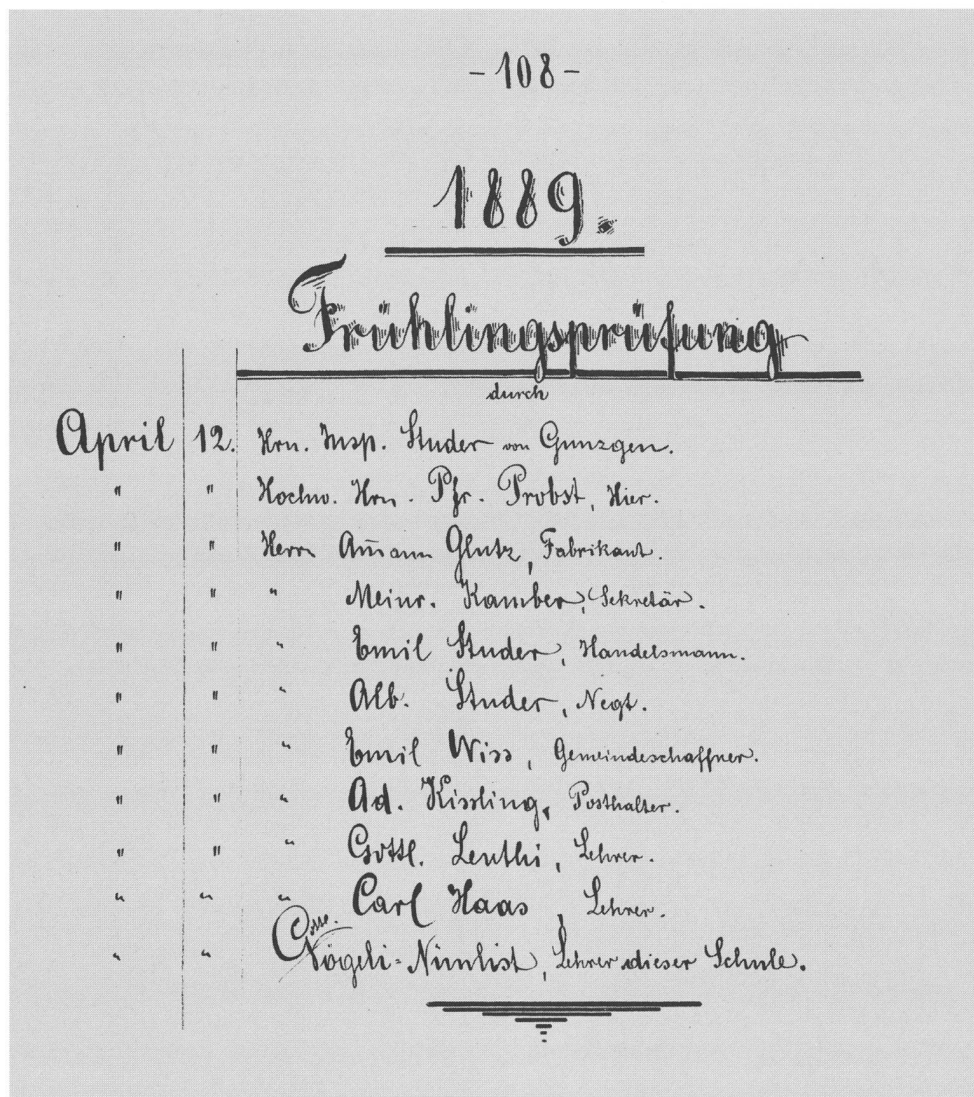 - 108 -
1889.
Frühlingsprüfung
durch
April 12. Hrn. Insp. Studer von Gunzgen.
" " Hochw. Hrn. Pfr. Probst, Hier.
" " Herrn Am̄ann Glutz, Fabrikant.
" " " Meinr. Kamber, Sekretär.
" " " Emil Studer, Handelsmann.
" " " Alb. Studer, Negt.
" " " Emil Wiss, Gemeindeschaffner.
" " " Ad. Kissling, Posthalter.
" " " Gottl. Leuthi, Lehrer.
" " " Carl Haas, Lehrer.
" " Vögeli-Nünlist, Lehrer dieser Schule.